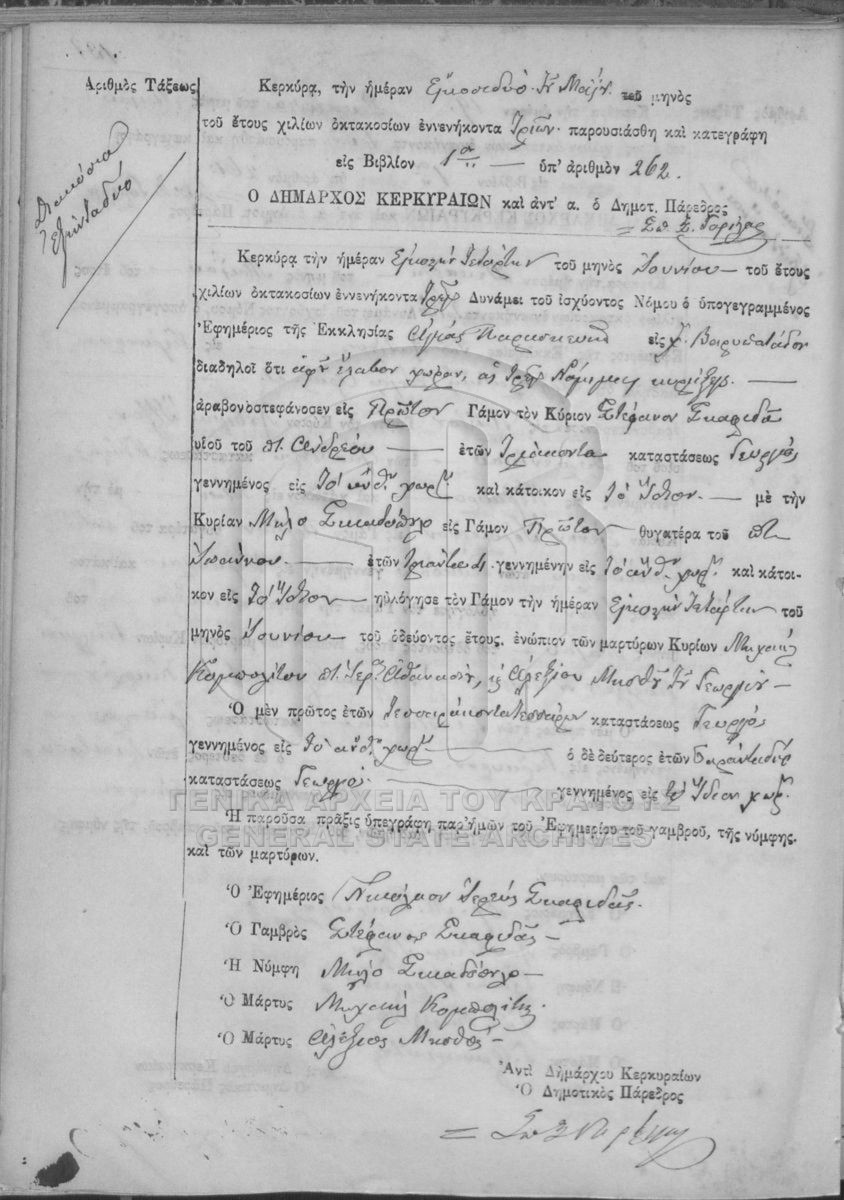 Ἀριθμὸς Τάξεως
Διακόσια
ἑξήντα δύο
Κερκύρᾳ, τὴν ἡμέραν τοῦ μηνὸς
τοῦ ἔτους χιλίων ὀκτακοσίων ἐννενήκοντα τριῶν παρουσιάσθη καὶ κατεγράφη
εἰς Βιβλίον 1ον ὑπ' ἀριθμὸν 262.
Ο ΔΗΜΑΡΧΟΣ ΚΕΡΚΥΡΑΙΩΝ καὶ ἀντ' α. ὁ Δημοτ. Πάρεδρος
Κερκύρᾳ τὴν ἡμέραν εἰκοστὴν τετάρτην τοῦ μηνὸς Ἰουνίου τοῦ ἔτους
χιλίων ὀκτακοσίων ἐννενήκοντα τριῶν Δυνάμει τοῦ ἰσχύοντος Νόμου ὁ ὑπογεγραμμένος
Ἐφημέριος τῆς Ἐκκλησίας Ἁγίας Παρασκευῆς εἰς χ. Βαρυπατάδων
διαδηλοῖ ὅτι ἀφ' οὗ ἔλαβον χώραν, αἱ τρεῖς Νόμιμαι κυρήξεις
ἀραβονοστεφάνοσεν εἰς Πρῶτον Γάμον τὸν Κύριον Στέφανον Σκαφιδᾶ
υἱοῦ τοῦ πτ. Ἀνδρέου ἐτῶν τριάκοντα καταστάσεως Γεωργός
γεννημένος εἰς τὸ ἄνωθ. χωρ. καὶ κάτοικον εἰς τὸ ἴδιον μὲ τὴν
Κυρίαν Μήλο εἰς Γάμον Πρῶτον θυγατέρα τοῦ πτ
Ἰωάννου ἐτῶν γεννημένην εἰς τὸ ἄνωθ. χωρ. καὶ κάτοι-
κον εἰς τὸ ἴδιον ηὐλόγησε τὸν Γάμον τὴν ἡμέραν εἰκοστὴν τετάρτην τοῦ
μηνὸς Ἰουνίου τοῦ ὁδεύοντος ἔτους, ἐνώπιον τῶν μαρτύρων Κυρίων Μιχαήλ
Κομπολίτου πτ. Ἱερ. Ἀθανασίου, κ Ἀλεξίου Μισθοῦ τοῦ Γεωργίου
Ὁ μὲν πρῶτος ἐτῶν τεσσαράκοντα τεσσάρων καταστάσεως Γεωργός
γεννημένος εἰς τὸ ἄνωθ. χωρ. ὁ δὲ δεύτερος ἐτῶν
καταστάσεως Γεωργός γεννημένος εἰς τὸ ἴδιον χωρ.
ΓΕΝΙΚΑ ΑΡΧΕΙΑ ΤΟΥ ΚΡΑΤΟΥΣ
Ἡ παροῦσα πρᾶξις ὑπεγράφη παρ' ἡμῶν τοῦ Ἐφημερίου τοῦ γαμβροῦ, τῆς νύμφης,
GENERAL STATE ARCHIVES
καὶ τῶν μαρτύρων.
Ὁ Ἐφημέριος Νικόλαος Ἱερεύς Σκαφιδᾶς
Ὁ Γαμβρὸς Στέφανος Σκαφιδᾶς
Ἡ Νύμφη Μήλο
Ὁ Μάρτυς Μιχαήλ Κομπολίτης
Ὁ Μάρτυς Ἀλέξιος Μισθός
Ἀντὶ Δημάρχου Κερκυραίων
Ὁ Δημοτικὸς Πάρεδρος